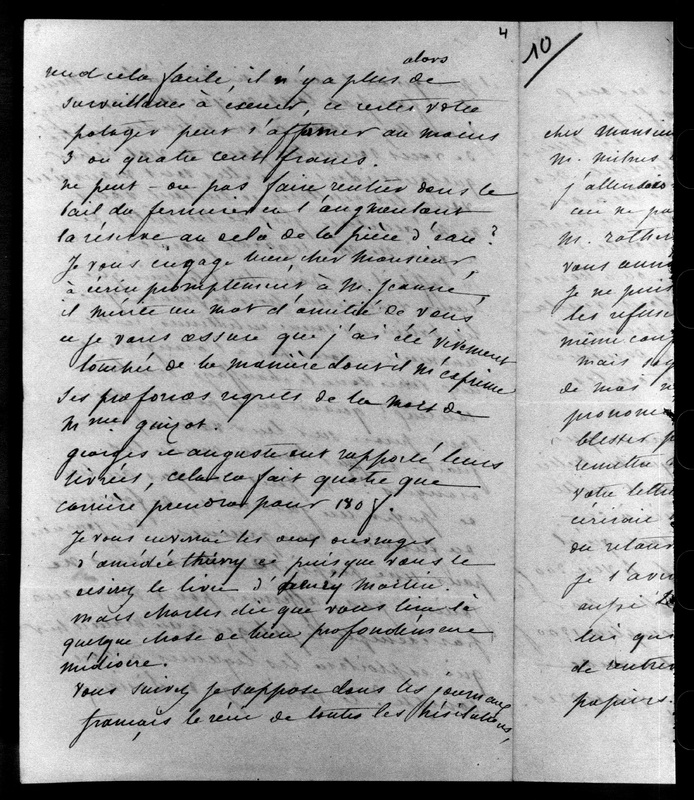 4
alors
rend cela facile, il n'y a plus de
surveillance à exercer, ce reste votre
potager peut s'affermer au moins
3 ou quatre cent francs.
ne peut-on pas faire rentrer dans le
bail du fermier en l'augmentant
la réserve au delà de la pièce d'eau ?
Je vous engage bien cher Monsieur,
à écrire promptement à M. Jeanné,
il mérite un mot d'amitié de vous
et je vous assure que j'ai été vivement
touchée de la manière dont il m'exprime
ses profonds regrets de la mort de
Mme guizot.
georges et auguste ont rapporté leurs
livrées, cela en fait quatre que
carrière prendra pour 180 f.
Je vous enverrai les deux ouvrages
d'amédée thierry et puisque vous le
désirez le livre d'henry Martin.
mais charles dit que vous lirez là
quelque chose de bien profondément
médiocre.
Vous suivez je suppose dans les journaux
français le récit de toutes les hésitations,
10
cher Monsieur
M. milnes
j'attendais
ceci ne pa
M. rother
vous aure
Je ne puis
les refuse
même coup
mais
de mas
prononc
blesses p
remettre
votre lettre
écrirai
du retard
je l'aver
aussi
lui qui
de rentrer
papiers.